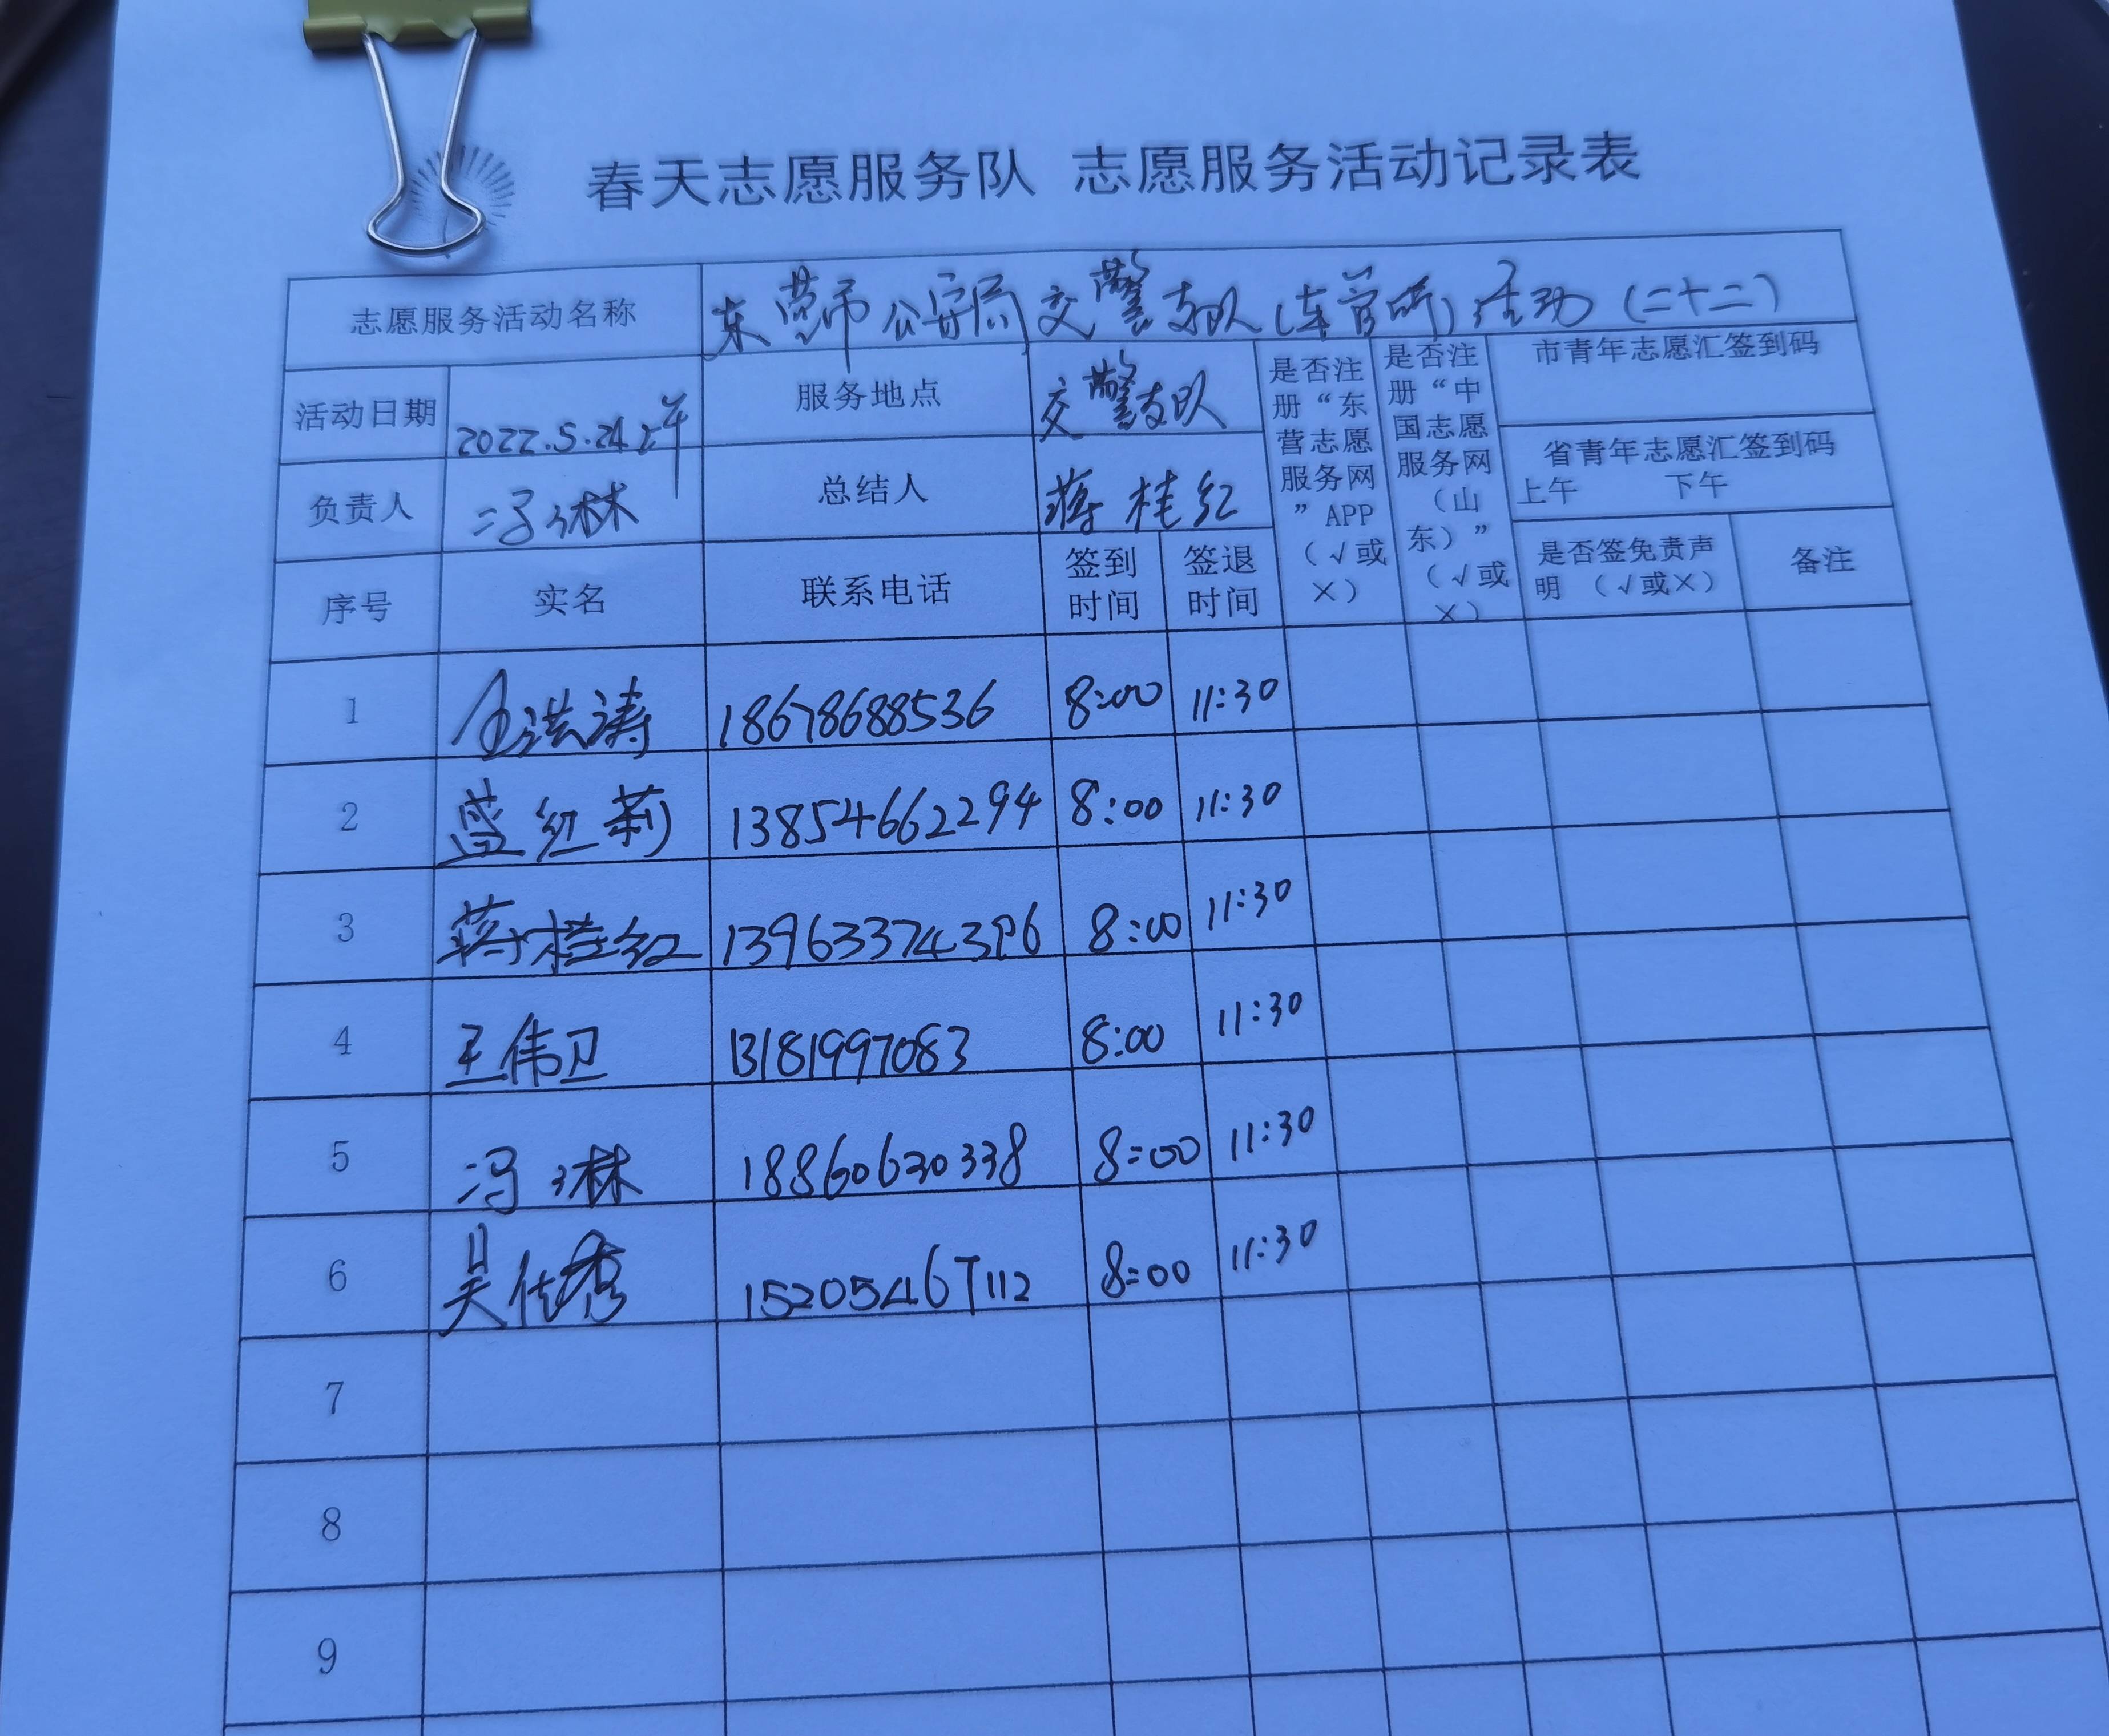 春天志愿服务队 志愿服务活动记录表
志愿服务活动名称 东营市公安局交警支队(车管所)活动(二十二)
活动日期 2022.5.24上午 服务地点 交警支队
是否注册“东营志愿服务网”APP(√或×)
是否注册“中国志愿服务网(山东)”(√或×)
市青年志愿汇签到码
省青年志愿汇签到码
上午 下午
负责人 冯琳 总结人 蒋桂红
序号 实名 联系电话 签到时间 签退时间 是否签免责声明 (√或×) 备注
1 洪涛 18678688536 8:00 11:30
2 红莉 13854662294 8:00 11:30
3 蒋桂红 13963374396 8:00 11:30
4 王伟卫 13181997083 8:00 11:30
5 冯琳 18860630338 8:00 11:30
6 吴秀 15205467112 8:00 11:30
7
8
9